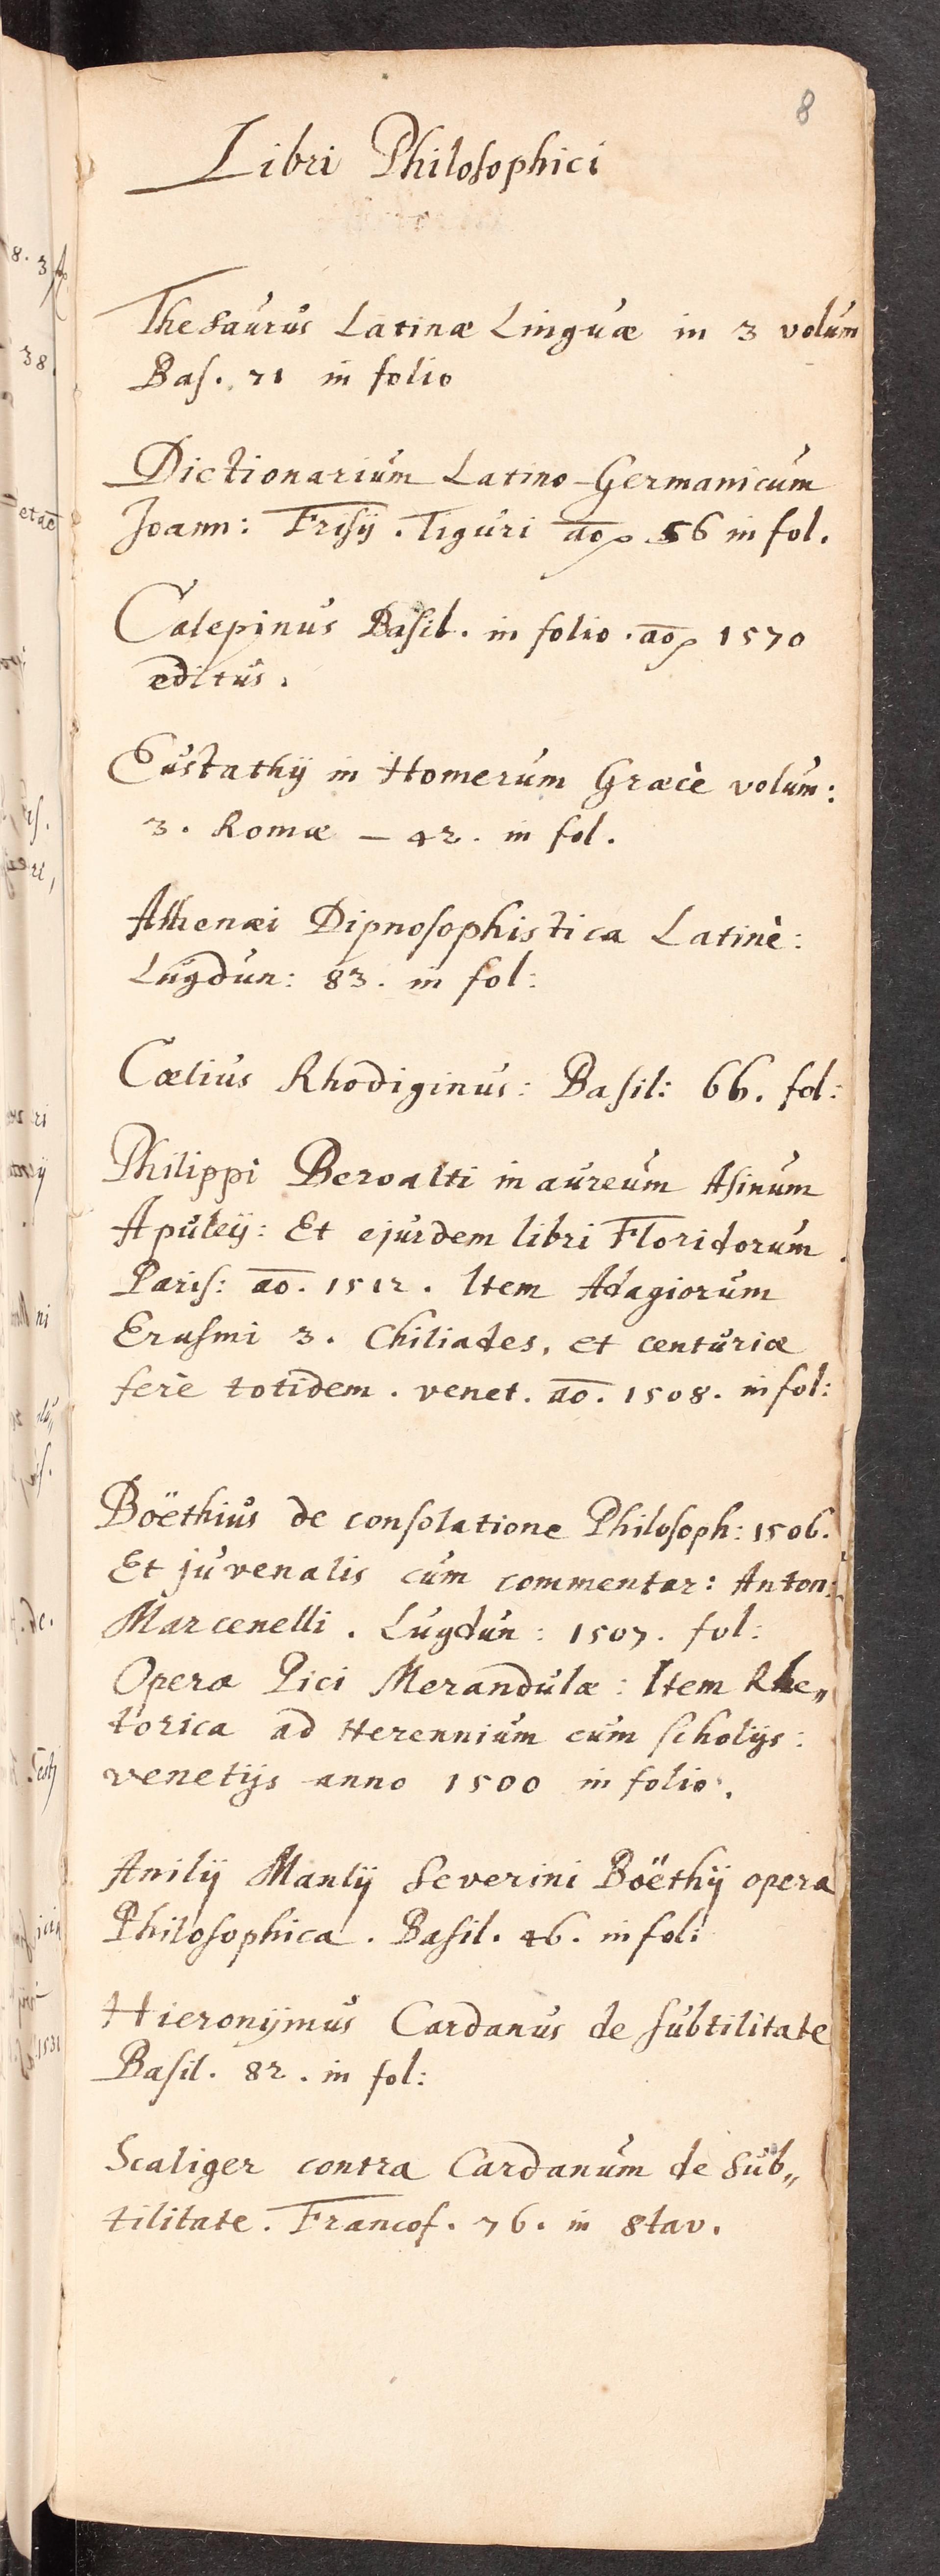 8
Libri Philosophici
Thesaurus Latinæ Linguæ in 3 volum
Bas. 71 in folio
Dictionarium Latino-Germanicum
Joann: Frisij. Tiguri ao 56 in fol.
Calepinus Basil. in folio. ao 1570
editus.
Eustathij in Homerum Græcè volum:
3. Romæ – 42. in fol.
Athenæi Dipnosophistica Latinè:
Lugdun: 83. in fol:
Cælius Rhodiginus: Basil: 66. fol:
Philippi Beroalti in aureum Asinum
Apuleij: Et ejusdem libri Floridorum
Paris: ao. 1512. Item Adagiorum
Erasmi 3. Chiliades, et centuriæ
ferè totidem. venet. ao. 1508. in fol:
Boëthius de consolatione Philosoph: 1506.
Et juvenalis cum commentar: Anton:
Marcenelli. Lugdun: 1507. fol:
Opera Pici Merandulæ: Item Rhe„
torica ad Herennium cum scholijs:
venetijs anno 1500 in folio.
Anilij Manlij Severini Boëthij opera
Philosophica. Basil. 46. in fol:
Hieronymus Cardanus de subtilitate
Basil. 82. in fol:
Scaliger contra Cardanum de sub„
tilitate. Francof. 76. in 8tav.